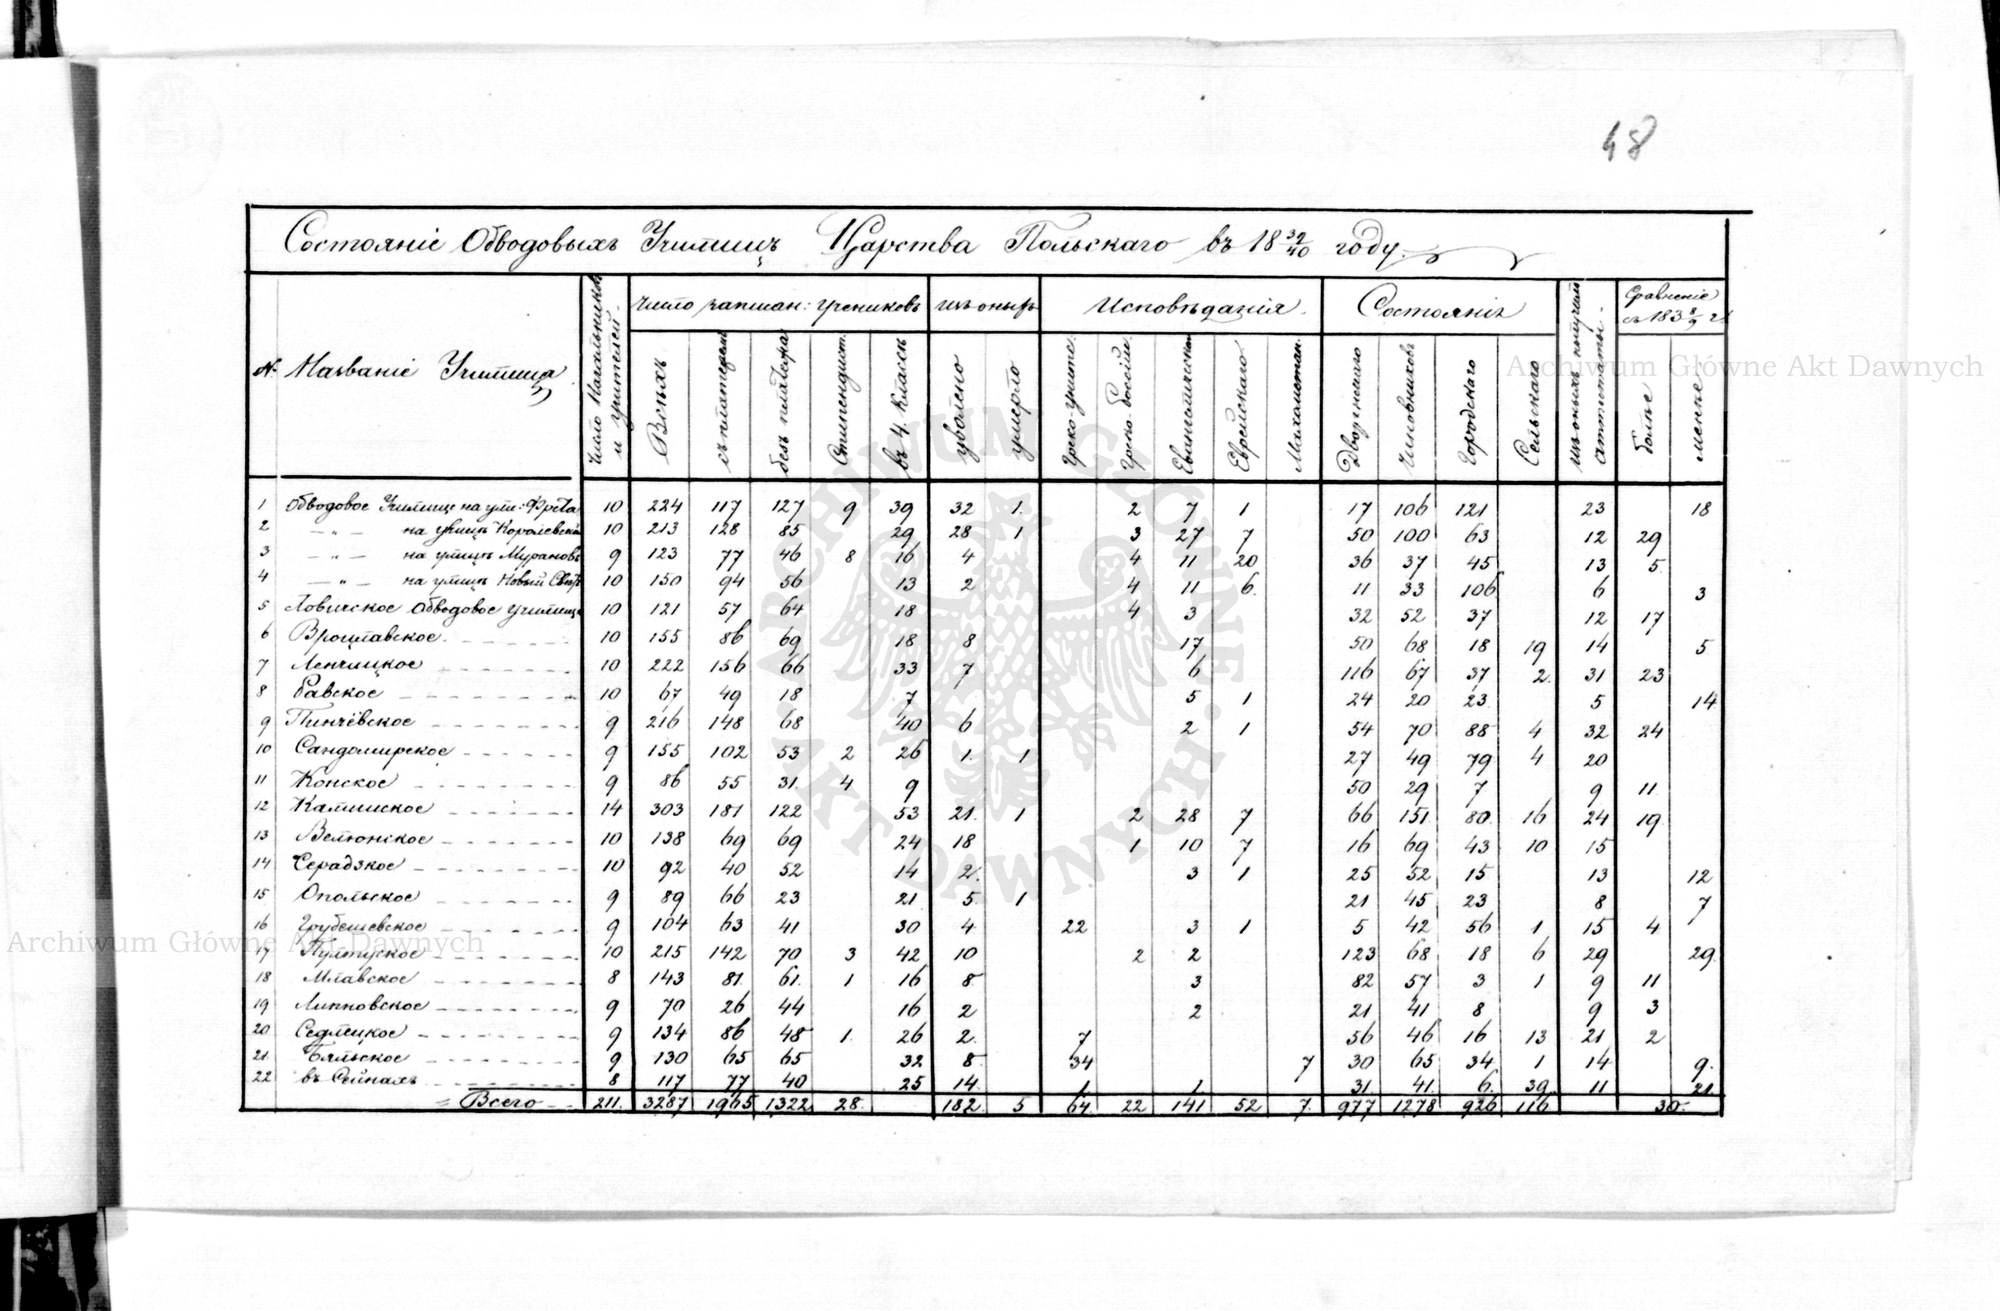 48
Состояніе Обводовыхъ Училищъ Царства Польскаго въ 18 39/40 году.
№ Названіе Училища
Число Начальниковъ и учителей.
Число записан: учениковъ
Всѣхъ
съ платежемъ
безъ платежа
Стипендист.
въ 4. классѣ
изъ оныхъ
уволено
умерло
Исповѣданія.
Греко-уніатс.
Греко-Россійс.
Евангелическаго
Еврейскаго
Магометан.
Состоянія
Дворянскаго
Чиновниковъ
Городскаго
Сельскаго
изъ оныхъ получили аттестаты.
Сравненіе съ 183 8/9
болѣе
менѣе
1 Обводовое Училище на ули: Фрета 10 224 117 127 9 39 32 1. 2 7 1 17 106 121 23 18
2 — „ — на улицѣ Королевской 10 213 128 85 29 28 1 3 27 7 50 100 63 12 29
3 — „ — на улицѣ Мурановъ 9 123 77 46 8 16 4 4 11 20 36 37 45 13 5
4 — „ — на улицѣ Новый Свѣтъ 10 150 94 56 13 2 4 11 6. 11 33 106 6 3
5 Ловичское Обводовое училище 10 121 57 64 18 4 3 32 52 37 12 17
6 Вроцлавское 10 155 86 69 18 8 17 50 68 18 19 14 5
7 Ленчицкое 10 222 156 66 33 7 6 116 67 37 2. 31 23
8 Равское 10 67 49 18 7 5 1 24 20 23 5 14
9 Пинчёвское 9 216 148 68 40 6 2 1 54 70 88 4 32 24
10 Сандомирское 9 155 102 53 2 26 1. 1 27 49 79 4 20
11 Конское 9 86 55 31. 4 9 50 29 7 9 11
12 Калишское 14 303 181 122 53 21. 1 2 28 7 66 151 80 16 24 19
13 Велюнское 10 138 69 69 24 18 1 10 7 16 69 43 10 15
14 Серадзкое 10 92 40 52 14 2. 3 1 25 52 15 13 12
15 Опольское 9 89 66 23 21 5 1 21 45 23 8 7
16 Грубешевское 9 104 63 41 30 4 22 3 1 5 42 56 1 15 4
17 Пултуское 10 215 142 70 3 42 10 2 2 123 68 18 6 29 29.
18 Млавское 8 143 81. 61. 1 16 8 3 82 57 3 1 9 11
19 Липновское 9 70 26 44 16 2 2 21 41 8 9 3
20 Седлецкое 9 134 86 48 1. 26 2. 7 56 46 16 13 21 2
21. Бяльское 9 130 65 65 32 8 34 7 30 65 34 1 14 9.
22 въ Сейнахъ 8 117 77 40 25 14 1 1 31 41 6. 39 11 21.
Всего 211. 3287 1965 1322 28. 182. 5 64. 22 141 52 7. 977 1278 926 116 30.
Archiwum Główne Akt Dawnych
Archiwum Główne Akt Dawnych
ARCHIWUM GŁÓWNE AKT DAWNYCH